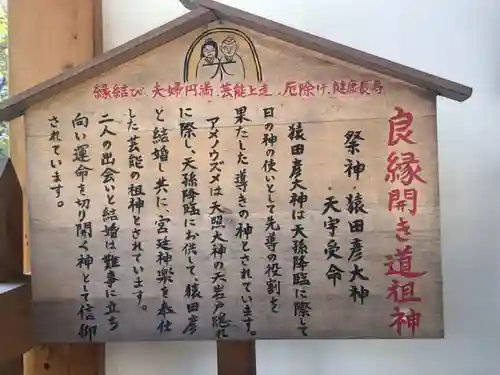 縁結び、夫婦円満、芸能上達、厄除け、健康長寿
良縁開き道祖神
祭神・猿田彦大神
・天宇受命
猿田彦大神は天孫降臨に際して
日の神の使いとして先導の役割を
果たした導きの神とされています。
アメノウズメは天照大神の天岩戸隠れ
に際し、天孫降臨にお供して、猿田彦
と結婚し共に、宮廷神楽を奉仕
した芸能の祖神とされています。
二人の出会いと結婚は難事に立ち
向い運命を切り開く神として信仰
されています。